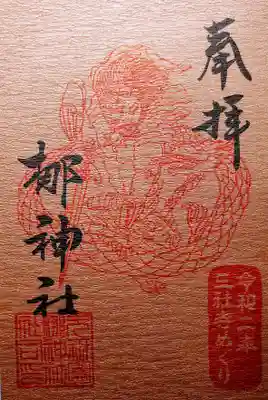 奉拝
梛神社
令和二年
三社
めぐり